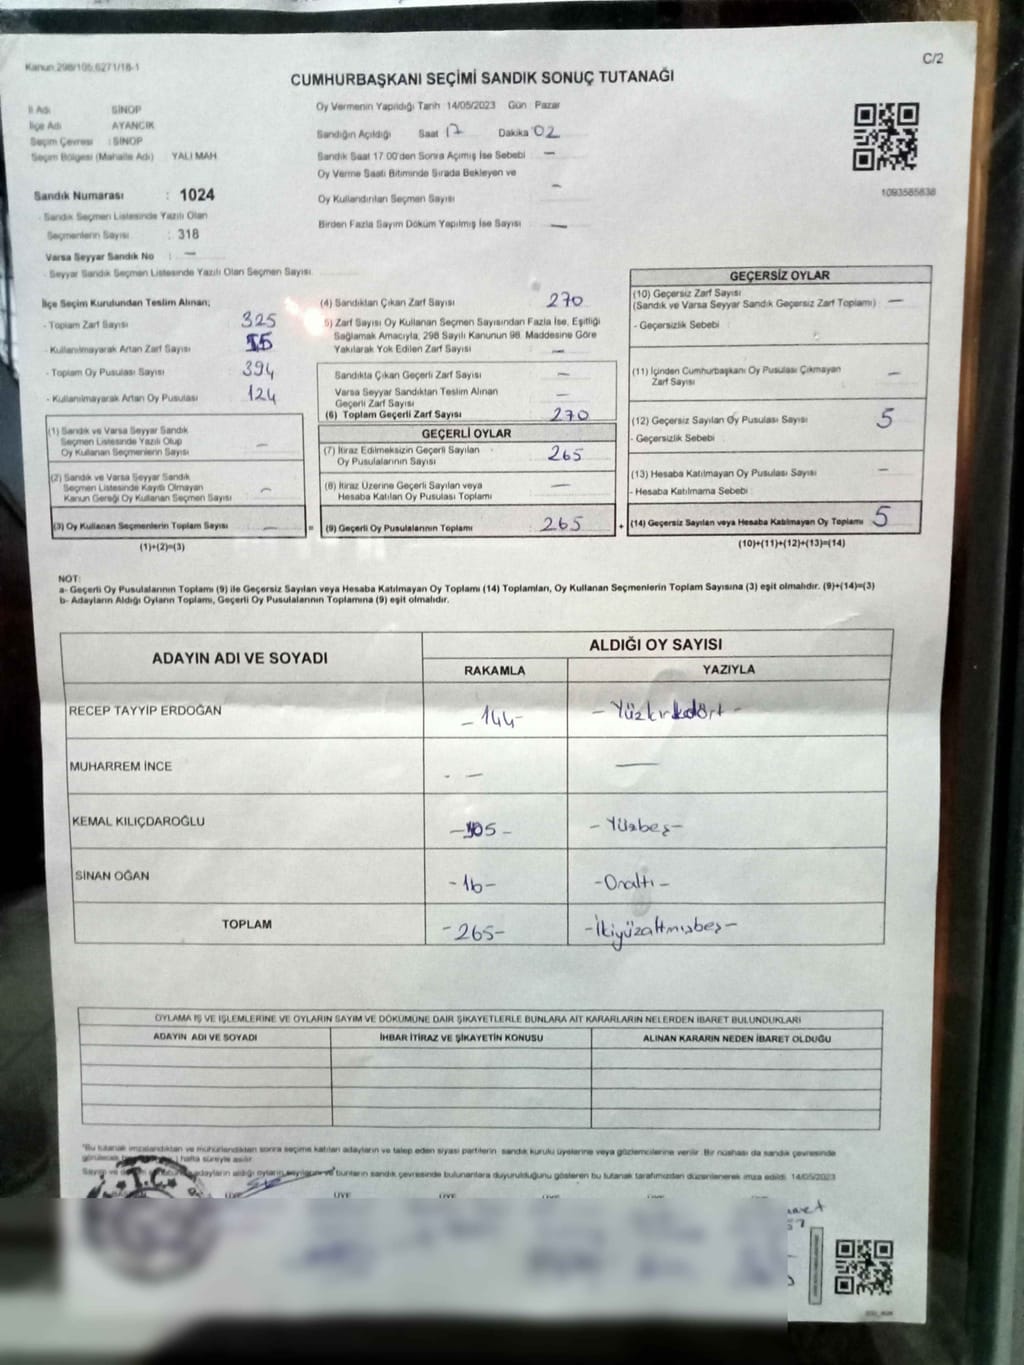 Kanun:298/105,6271/18-1
C/2
CUMHURBAŞKANI SEÇİMİ SANDIK SONUÇ TUTANAĞI
İl Adı SİNOP
İlçe Adı AYANCIK
Seçim Çevresi : SİNOP
Seçim Bölgesi (Mahalle Adı) YALI MAH
Sandık Numarası : 1024
- Sandık Seçmen Listesinde Yazılı Olan
Seçmenlerin Sayısı : 318
Varsa Seyyar Sandık No : —
- Seyyar Sandık Seçmen Listesinde Yazılı Olan Seçmen Sayısı
Oy Vermenin Yapıldığı Tarih : 14/05/2023 Gün : Pazar
Sandığın Açıldığı Saat 17 Dakika 02
Sandık Saat 17.00'den Sonra Açımış İse Sebebi : —
Oy Verme Saati Bitiminde Sırada Bekleyen ve
Oy Kullandırılan Seçmen Sayısı : —
Birden Fazla Sayım Döküm Yapılmış İse Sayısı : —
1093585838
İlçe Seçim Kurulundan Teslim Alınan;
- Toplam Zarf Sayısı 325
- Kullanılmayarak Artan Zarf Sayısı 55
- Toplam Oy Pusulası Sayısı 394
- Kullanılmayarak Artan Oy Pusulası 124
(1) Sandık ve Varsa Seyyar Sandık
Seçmen Listesinde Yazılı Olup
Oy Kullanan Seçmenlerin Sayısı —
(2) Sandık ve Varsa Seyyar Sandık
Seçmen Listesinde Kayıtlı Olmayan
Kanun Gereği Oy Kullanan Seçmen Sayısı —
(3) Oy Kullanan Seçmenlerin Toplam Sayısı — =
(1)+(2)=(3)
(4) Sandıktan Çıkan Zarf Sayısı 270
5) Zarf Sayısı Oy Kullanan Seçmen Sayısından Fazla İse, Eşitliği
Sağlamak Amacıyla, 298 Sayılı Kanunun 98. Maddesine Göre
Yakılarak Yok Edilen Zarf Sayısı —
Sandıkta Çıkan Geçerli Zarf Sayısı —
Varsa Seyyar Sandıktan Teslim Alınan
Geçerli Zarf Sayısı —
(6) Toplam Geçerli Zarf Sayısı 270
GEÇERLİ OYLAR
(7) İtiraz Edilmeksizin Geçerli Sayılan
Oy Pusulalarının Sayısı 265
(8) İtiraz Üzerine Geçerli Sayılan veya
Hesaba Katılan Oy Pusulası Toplamı —
(9) Geçerli Oy Pusulalarının Toplamı 265 +
GEÇERSİZ OYLAR
(10) Geçersiz Zarf Sayısı
(Sandık ve Varsa Seyyar Sandık Geçersiz Zarf Toplamı) —
- Geçersizlik Sebebi :
(11) İçinden Cumhurbaşkanı Oy Pusulası Çıkmayan
Zarf Sayısı —
(12) Geçersiz Sayılan Oy Pusulası Sayısı 5
- Geçersizlik Sebebi :
(13) Hesaba Katılmayan Oy Pusulası Sayısı —
- Hesaba Katılmama Sebebi :
(14) Geçersiz Sayılan veya Hesaba Katılmayan Oy Toplamı 5
(10)+(11)+(12)+(13)=(14)
NOT:
a- Geçerli Oy Pusulalarının Toplamı (9) ile Geçersiz Sayılan veya Hesaba Katılmayan Oy Toplamı (14) Toplamları, Oy Kullanan Seçmenlerin Toplam Sayısına (3) eşit olmalıdır. (9)+(14)=(3)
b- Adayların Aldığı Oyların Toplamı, Geçerli Oy Pusulalarının Toplamına (9) eşit olmalıdır.
ADAYIN ADI VE SOYADI
ALDIĞI OY SAYISI
RAKAMLA YAZIYLA
RECEP TAYYİP ERDOĞAN -144- -Yüzkırkdört-
MUHARREM İNCE - — —
KEMAL KILIÇDAROĞLU -105- -Yüzbeş-
SİNAN OĞAN -16- -Onaltı-
TOPLAM -265- -İkiyüzaltmışbeş-
OYLAMA İŞ VE İŞLEMLERİNE VE OYLARIN SAYIM VE DÖKÜMÜNE DAİR ŞİKAYETLERLE BUNLARA AİT KARARLARIN NELERDEN İBARET BULUNDUKLARI
ADAYIN ADI VE SOYADI İHBAR İTİRAZ VE ŞİKAYETİN KONUSU ALINAN KARARIN NEDEN İBARET OLDUĞU
"Bu tutanak imzalandıktan ve mühürlendikten sonra seçime katılan adayların ve talep eden siyasi partilerin sandık kurulu üyelerine veya gözlemcilerine verilir. Bir nüshası da sandık çevresinde
hafta süreyle asılır.
adayların aldığı oyların sayılarını ve bunların sandık çevresinde bulunanlara duyurulduğunu gösteren bu tutanak tarafımızdan düzenlenerek imza edildi. 14/05/2023
T.C.
ÜYE ÜYE ÜYE ÜYE ÜYE